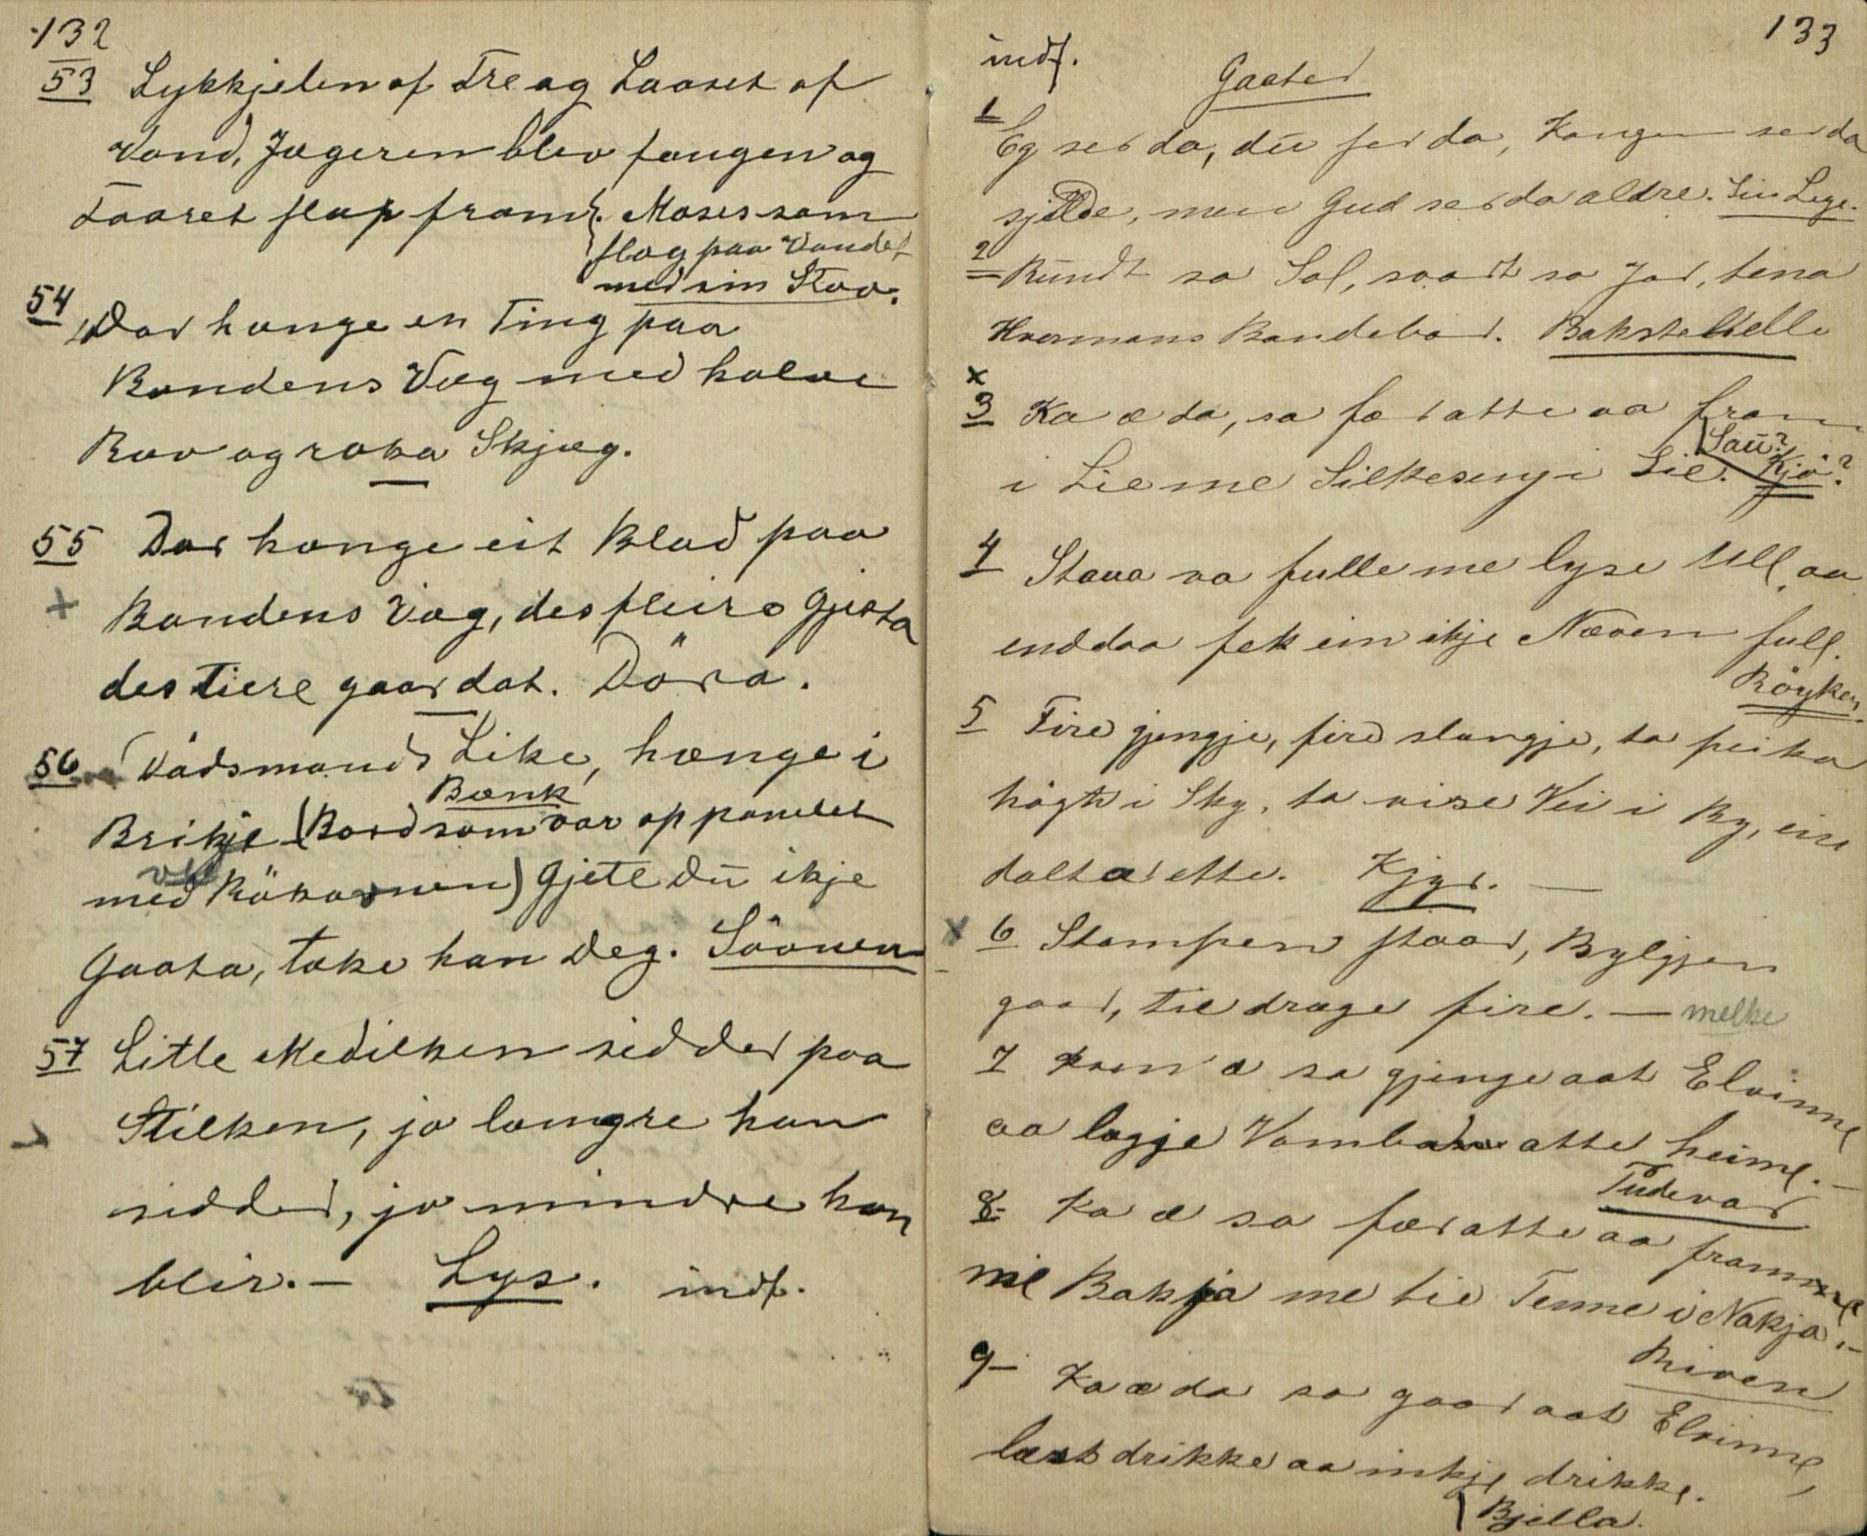 132
53 Lykkjelen af Tre og Laaset af
Vand, Jægeren blev fangen og
Faaret slap fram. Moses som
slog paa Vandet
med sin Stav.
54 Dar hange en Ting paa
Bondens Væg med halve
Rav og raua Skjæg.
55 Dar hange eit Blad paa
Bondens Væg, des fleire Gjesta
des tiere gaar dat. Döra.
56 Vådsmands Like, hænge i
Bænk
Brikje (Bord som var op panelet
med Rökovnen) Gjete Dŭ ikje
Gaata, take han Deg. Sövnen
57 Litle Medilken sidder paa
Stilken, jo længre han
sidder, jo mindre han
blir. - Lys. indf.
133
indf.
Gaater
1 Eg ser da, dŭ ser da, Kongen ser da
sjelde, men Gud ser da aldre. Sin Lige.
2 Rŭndt so Sol, svart so Jor, tena
Hvermans Bandebor. Bakstehelle
x
3 Ka æ da, so fær atte aa fram
i Lie me Silkeseng i Lie. Saŭ? Kjö?
4 Stava va fulle me lyse Ull, aa
enddaa fek ein ikje Næven full.
Röyken.
5 Fire gjengje, fire slengje, to peika
högt i Sky, to vise Vei i By, ein
dalta ette. Kjyr. —
x 6 Stampen staar, Bylgjen
gaar, tie drage fire. — melke
7 Kven æ so gjenge aat Elvinne
aa leggje Vamba atte heime. —
Tŭdevar
8 Ka æ so fær atte aa framme
me Bakja me tie Tenne i Nakja. —
Riven
9 Ka æ da so gaar aat Elvinne,
læst drikke aa inkje drikke.
Bjella.